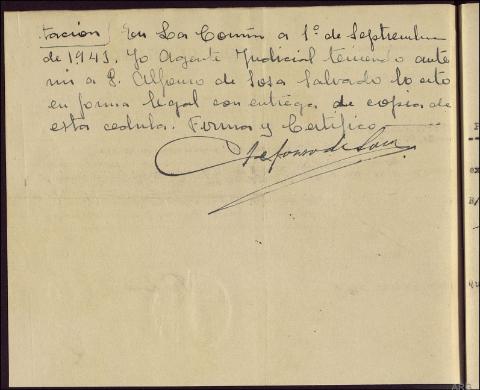 tación) En La Coruña a 1º de Septiembre
de 1943. Yo Agente Judicial teniendo ante
mi a D. Alfonso de Sosa Salvado lo cito
en forma legal con entrega de copia de
esta cedula. Firma y Certifico
Alfonso de Sosa